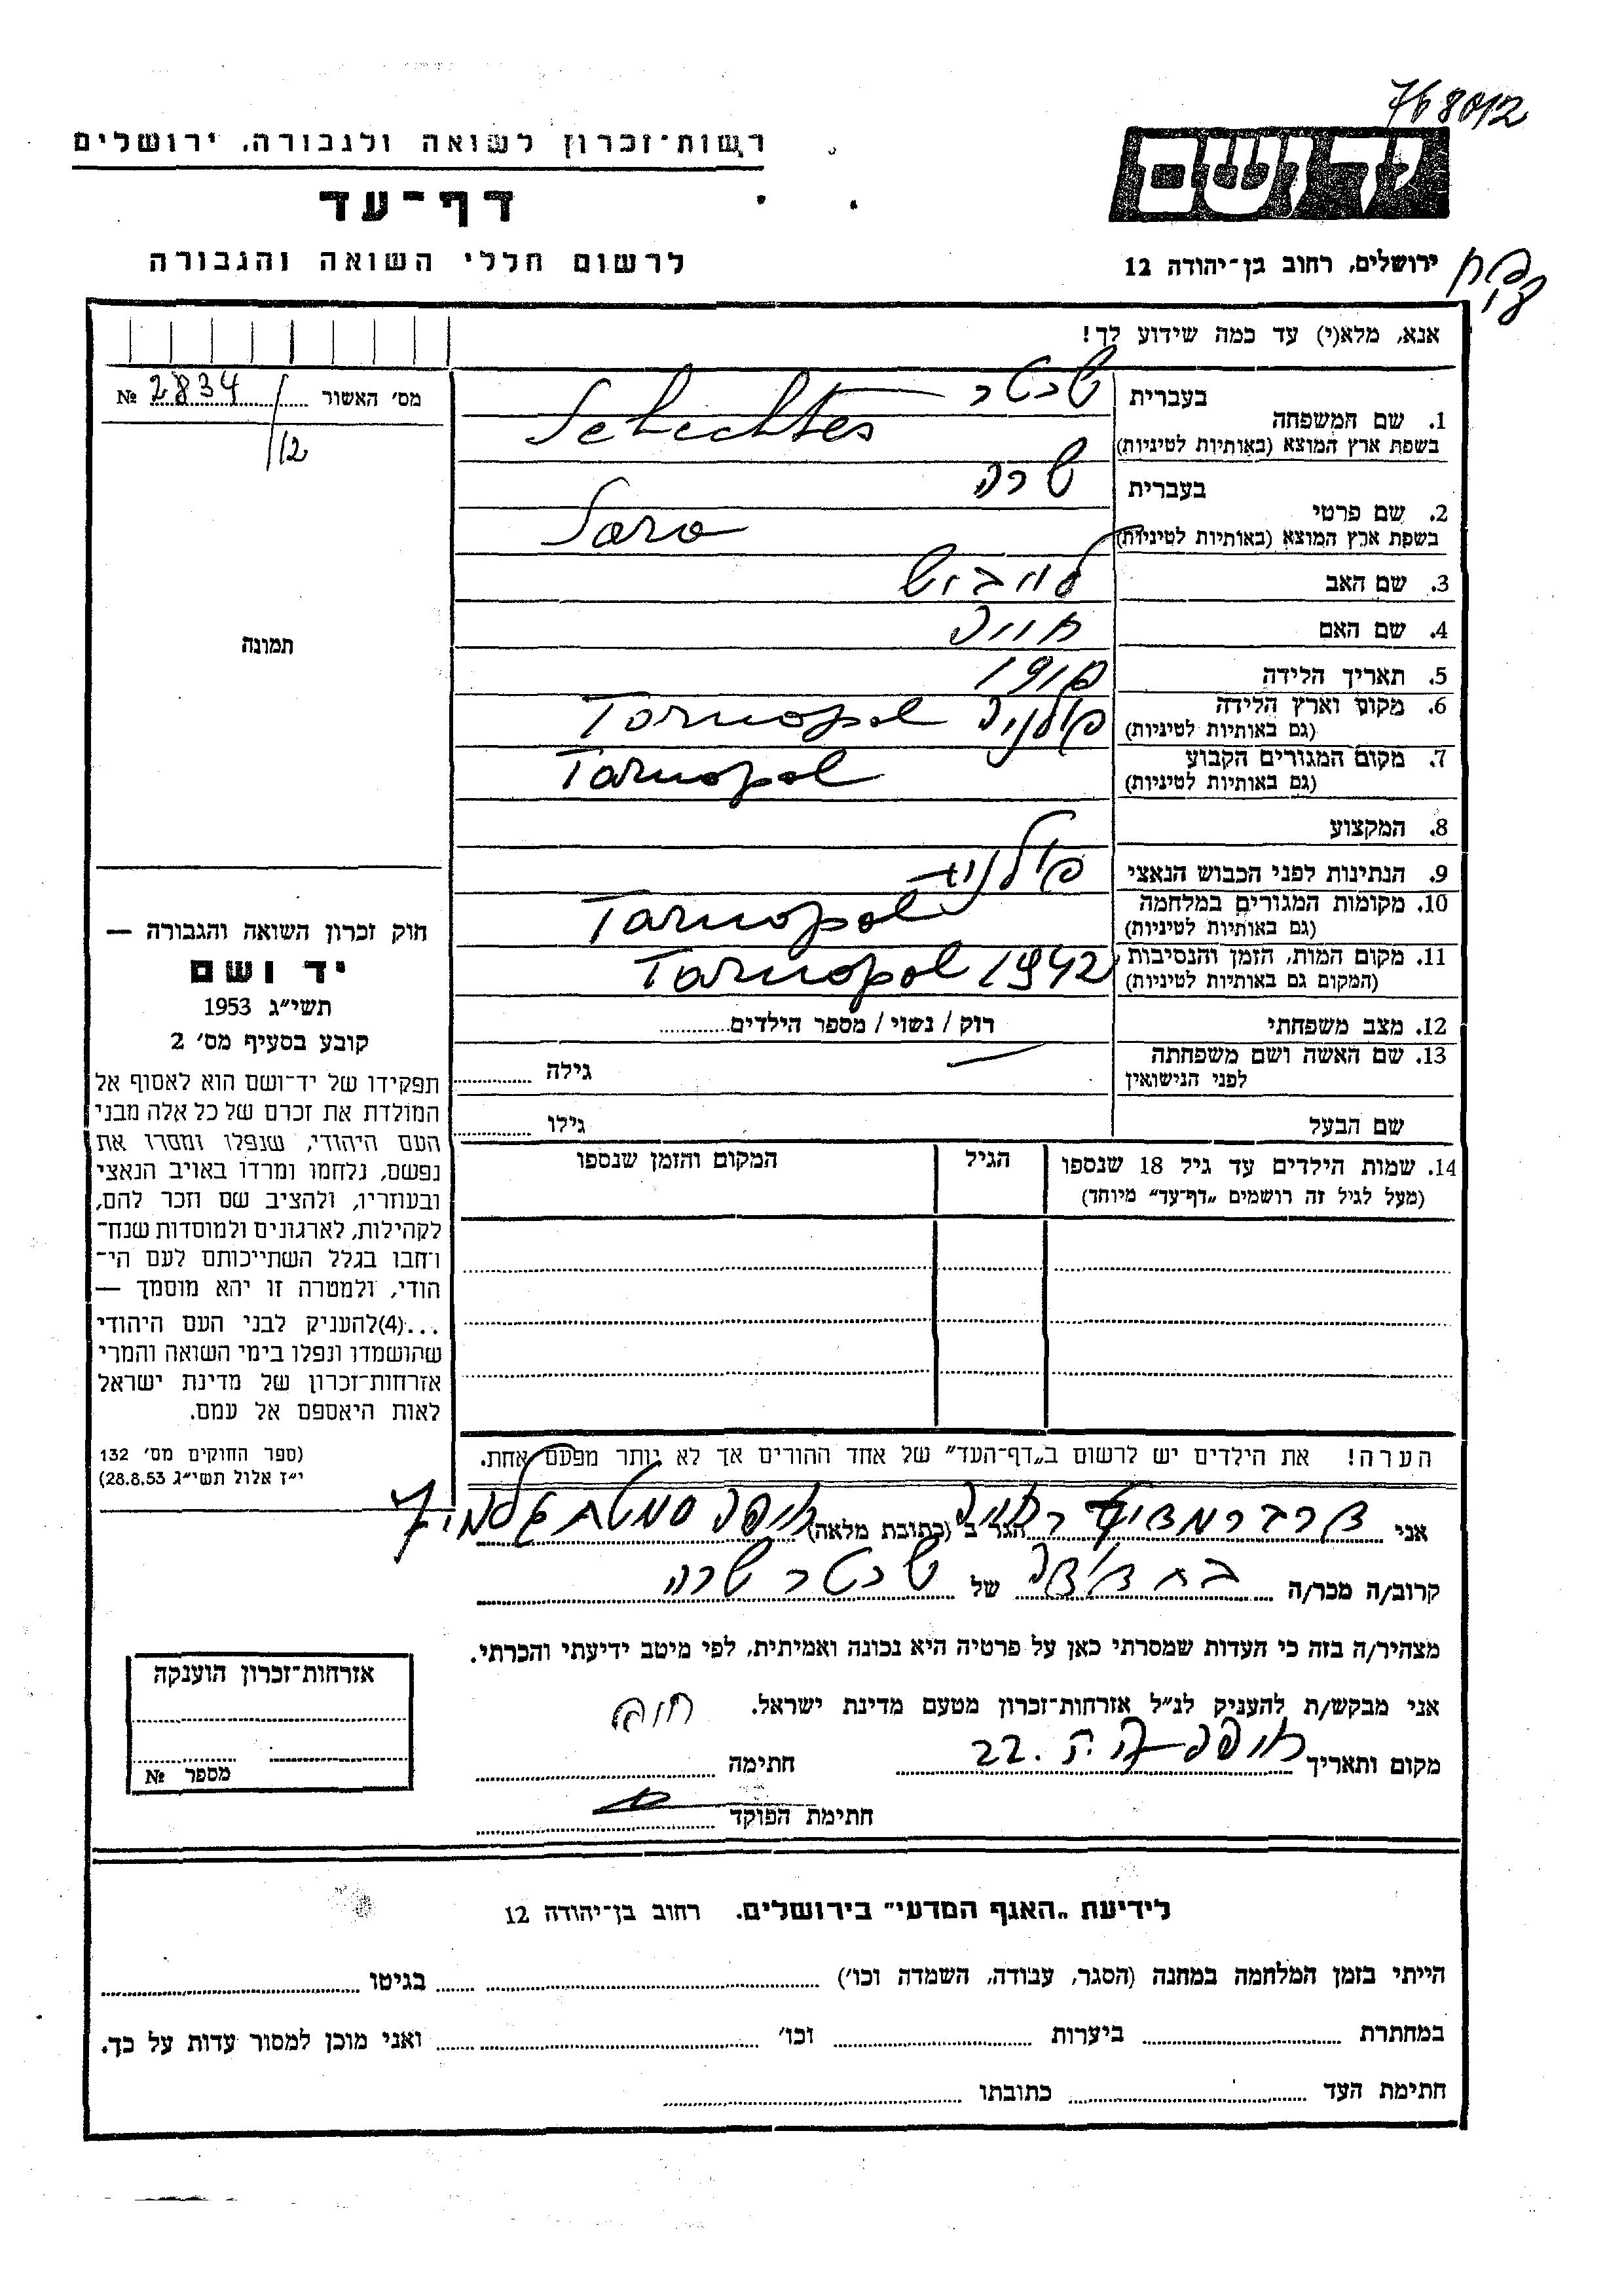 768012
רשות-זכרון לשואה ולגבורה, ירושלים
יד ושם
דף-עד
לרשום חללי השואה והגבורה
ירושלים, רחוב בן-יהודה 12
אנא, מלא(י) עד כמה שידוע לך!
מס' האשור 2834 №
12
תמונה
1. שם המשפחה בעברית שכטר
בשפת ארץ המוצא (באותיות לטיניות) Schechter
2. שם פרטי בעברית שרה
בשפת ארץ המוצא (באותיות לטיניות) Sara
3. שם האב לייביש
4. שם האם חויה
5. תאריך הלידה
6. מקום וארץ הלידה פולניה Tarnopol
(גם באותיות לטיניות)
7. מקום המגורים הקבוע Tarnopol
(גם באותיות לטיניות)
8. המקצוע
9. הנתינות לפני הכבוש הנאצי פולנית
10. מקומות המגורים במלחמה Tarnopol
(גם באותיות לטיניות)
11. מקום המות, הזמן והנסיבות Tarnopol 1942
(המקום גם באותיות לטיניות)
12. מצב משפחתי רוק / נשוי / מספר הילדים
13. שם האשה ושם משפחתה גילה
לפני הנישואין
שם הבעל גילו
14. שמות הילדים עד גיל 18 שנספו הגיל המקום והזמן שנספו
(מעל לגיל זה רושמים „דף-עד" מיוחד)
הערה! את הילדים יש לרשום ב„דף-העד" של אחד ההורים אך לא יותר מפעם אחת.
חוק זכרון השואה והגבורה —
יד ושם
תשי"ג 1953
קובע בסעיף מס' 2
תפקידו של יד-ושם הוא לאסוף אל
המולדת את זכרם של כל אלה מבני
העם היהודי, שנפלו ומסרו את
נפשם, נלחמו ומרדו באויב הנאצי
ובעוזריו, ולהציב שם וזכר להם,
לקהילות, לארגונים ולמוסדות שנח-
רחבו בגלל השתייכותם לעם הי-
הודי, ולמטרה זו יהא מוסמך —
...(4)להעניק לבני העם היהודי
שהושמדו ונפלו בימי השואה והמרי
אזרחות-זכרון של מדינת ישראל
לאות היאספם אל עמם.
(ספר החוקים מס' 132
י"ז אלול תשי"ג 28.8.53)
אני הגר ב (כתובת מלאה) חיפה
קרוב/ה מכר/ה בת דודה של שכטר שרה
מצהיר/ה בזה כי העדות שמסרתי כאן על פרטיה היא נכונה ואמיתית, לפי מיטב ידיעתי והכרתי.
אני מבקש/ת להעניק לנ"ל אזרחות-זכרון מטעם מדינת ישראל.
מקום ותאריך חיפה חתימה
חתימת הפוקד
אזרחות-זכרון הוענקה
מספר №
לידיעת „האגף המדעי" בירושלים, רחוב בן-יהודה 12
הייתי בזמן המלחמה במחנה (הסגר, עבודה, השמדה וכו') בגיטו
במחתרת ביערות וכו' ואני מוכן למסור עדות על כך.
חתימת העד כתובתו